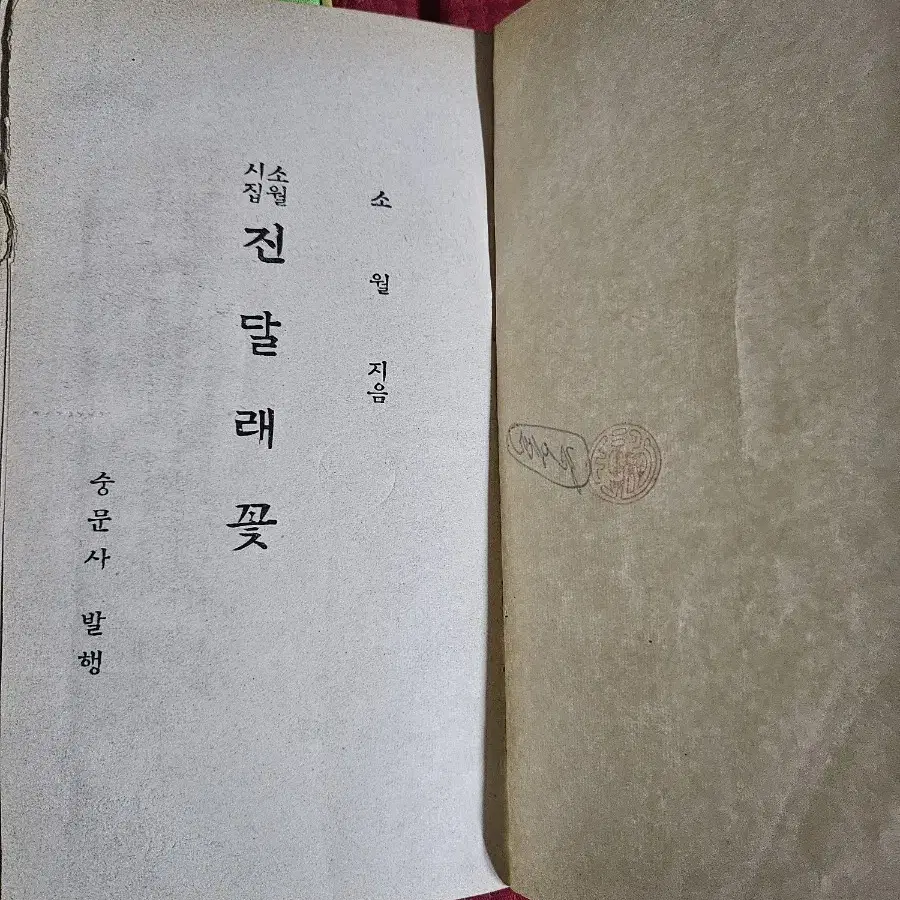 소월 지음
소월
시집
진달래꽃
숭문사 발행